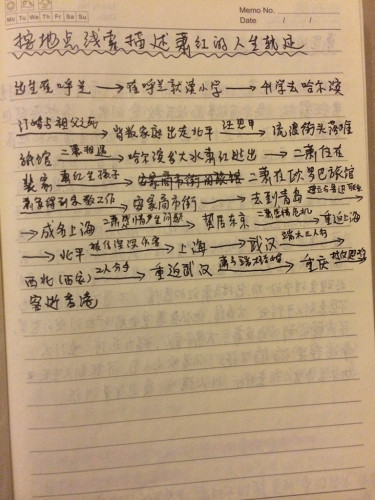 Mo Tu We Th Fr Sa Su
Memo No.
Date / /
按地点线索描述萧红的人生轨迹
出生在呼兰 → 在呼兰就读小学 → 升学去哈尔滨
订婚与祖父死 → 背叛家庭出走北平 → 流浪街头落难
旅馆 二萧相遇 → 哈尔滨发大水萧红逃出 → 二萧住在
裴家 萧红生孩子 → 二萧在欧罗巴旅馆
萧军得到家教工作 → 安家商市街 → 去到青岛
→ 成名上海 二萧感情产生问题 → 暂居东京 二萧感情危机 → 重返上海
→ 北平 → 上海 → 武汉 端木三人行
西北(西安) 二人分手 → 重返武汉 萧与端木结婚 → 重庆
客逝香港